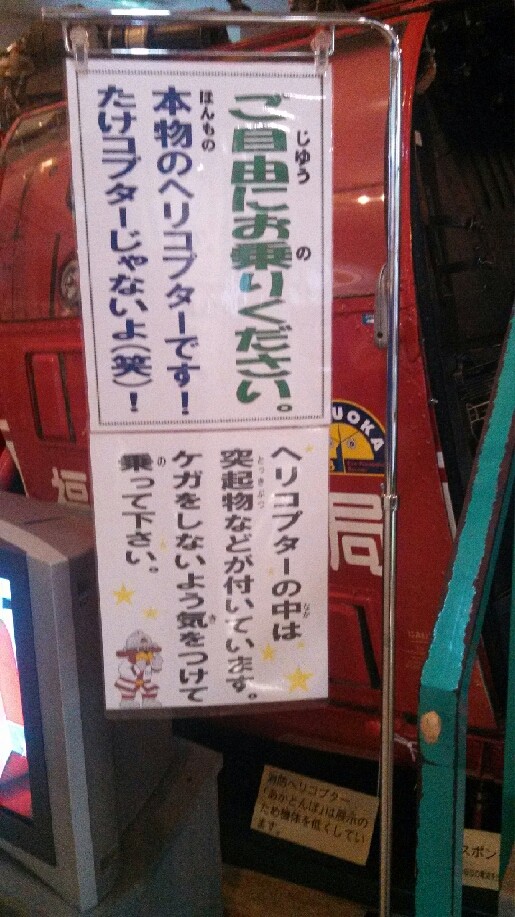 ご自由にお乗りください。
じゆう
の
本物のヘリコプターです!
ほんもの
たけコプターじゃないよ(笑)!
ヘリコプターの中は
なか
突起物などが付いています。
とっきぶつ
ケガをしないよう気をつけて
き
乗って下さい。
の
UOKA
福
局
消防ヘリコプター
「あかとんぼ」は展示の
ため機体を低くしてい
ます。
スポン